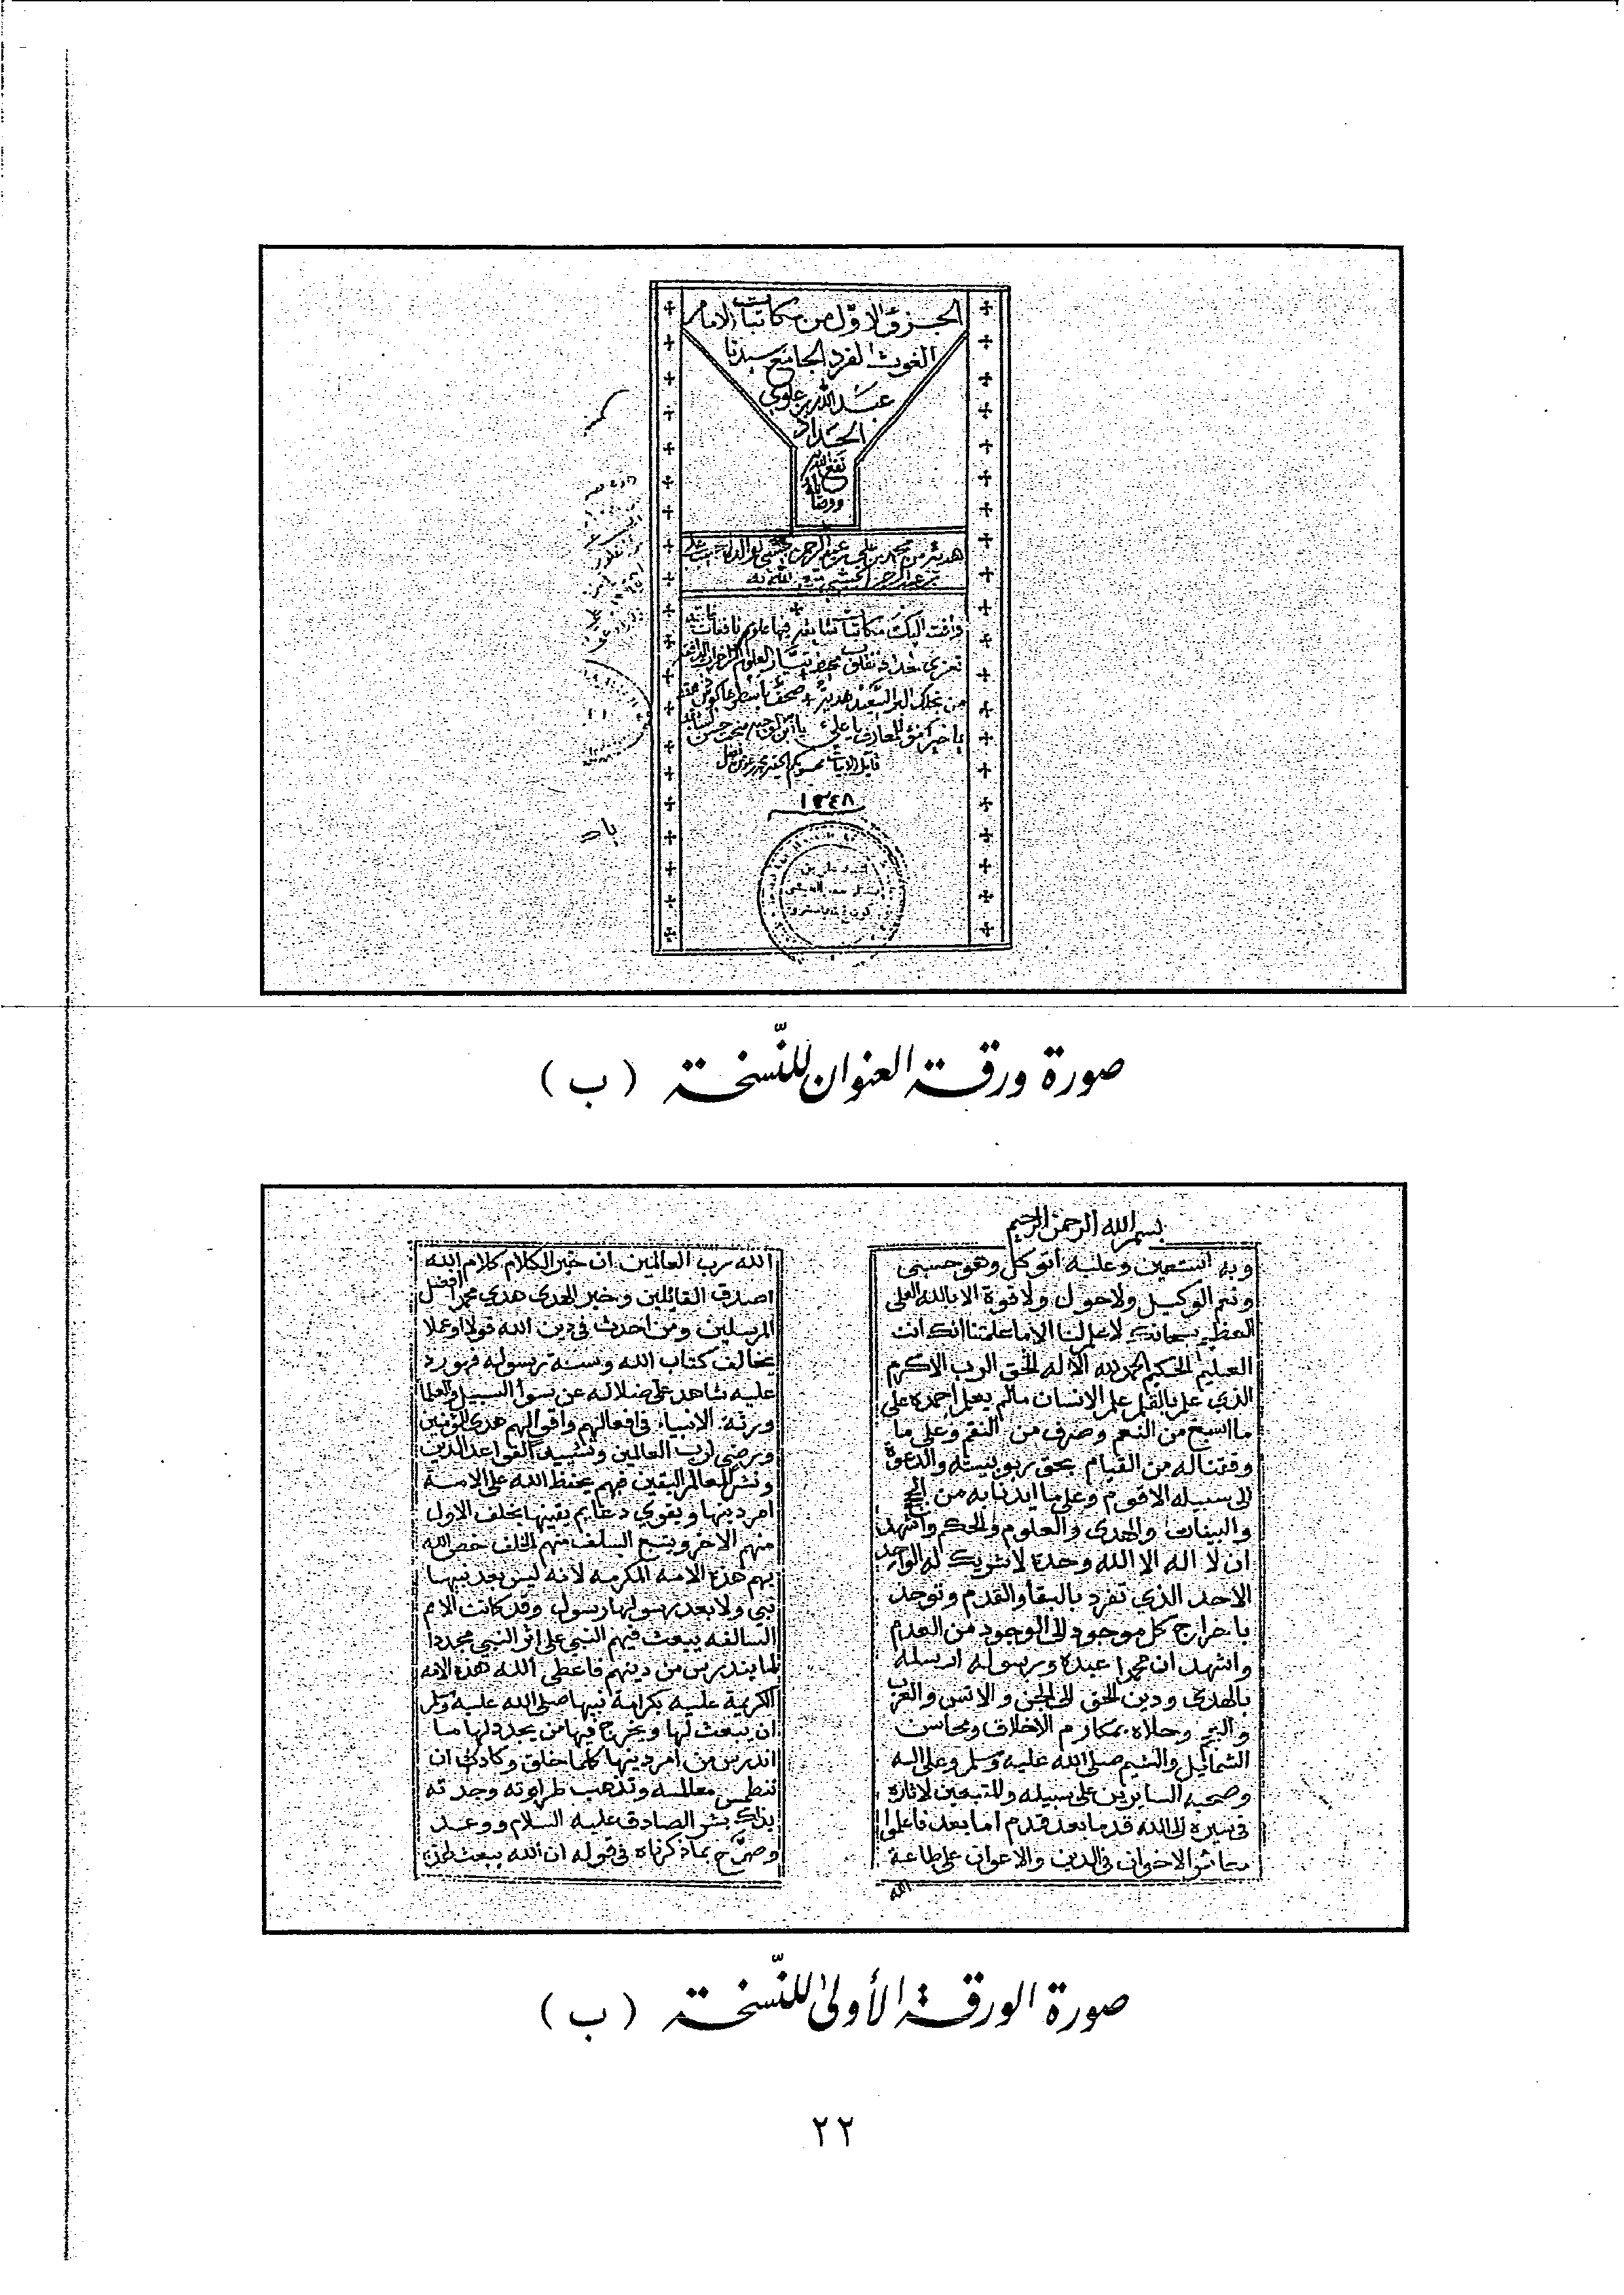 الجزؤ الاول من مكاتبات الامام
الغوث الفرد الجامع سيدنا
عبد الله بن علوي
الحداد
نفع الله
به
هدية من محمد بن علي بن عبد الرحمن
بن عبد الرحمن الحبشي
وافت اليك مكاتبات فيها علوم نافعات
من نجلك البر السعيد هدية
١٣٤٨
صورة ورقة العنوان للنّسخة (ب)
بسم الله الرحمن الرحيم
وبه استعين وعليه اتوكل وهو حسبي
ونعم الوكيل ولاحول ولاقوة الا بالله العلي
العظيم سبحانك لا علم لنا الا ما علمتنا انك انت
العليم الحكيم الحمد لله الاله الحق الرب الاكرم
الذي علم بالقلم علم الانسان مالم يعلم احمده على
ما اسبغ من النعم وصرف من النقم وعلى ما
وفقنا له من القيام بحق ربوبيته والدعوة
الى سبيله الاقوم وعلى ما ايدنا به من الحجج
والبينات والهدى والعلوم والحكم واشهد
ان لا اله الا الله وحده لاشريك له الواحد
الاحد الذي تفرد بالبقا والقدم وتوحد
باخراج كل موجود الى الوجود من العدم
واشهد ان محمدا عبده ورسوله ارسله
بالهدى ودين الحق الى الجن والانس والعرب
والعجم وحلاه بمكارم الاخلاق ومحاسن
الشمايل والشيم صلى الله عليه وسلم وعلى اله
وصحبه السايرين على سبيله والمتبعين لاثاره
في سيره الى الله قدما بعد قدم اما بعد فاعلموا
معاشر الاخوان في الدين والاعوان على طاعة
الله
الله رب العالمين ان خير الكلام كلام الله
اصدق القايلين وخير الهدى هدي محمد افضل
المرسلين ومن احدث في دين الله قولا او عملا
يخالف كتاب الله وسنة رسوله فهو رد
عليه شاهد على ضلاله عن سوا السبيل والعلما
ورثة الانبياء في افعالهم واقوالهم هدى للمؤمنين
ورضى لرب العالمين وتشييد القواعد الدين
ونشر لمعالم اليقين فبهم يحفظ الله على الامة
امر دينها ويقوي دعايم يقينها يخلف الاول
منهم الاخر ويتبع السلف منهم الخلف خص الله
بهم هذه الامة المكرمه لانه ليس بعد نبيها
نبي ولا بعد رسولها رسول وقد كانت الامم
السالفه يبعث فيهم النبي على اثر النبي مجددا
لما يندرس من دينهم فاعطى الله هذه الامه
الكريمة عليه بكرامة نبيها صلى الله عليه وسلم
ان يبعث لها ويخرج فيها من يجدد لها ما
اندرس من امر دينها كلما خلق وكادت ان
تنطمس معالمه وتذهب طراوته وجدته
بذلك بشر الصادق عليه السلام ووعد
وصرّح بما ذكرناه في قوله ان الله يبعث لهذه
صورة الورقة الأولى للنّسخة (ب)
٢٢